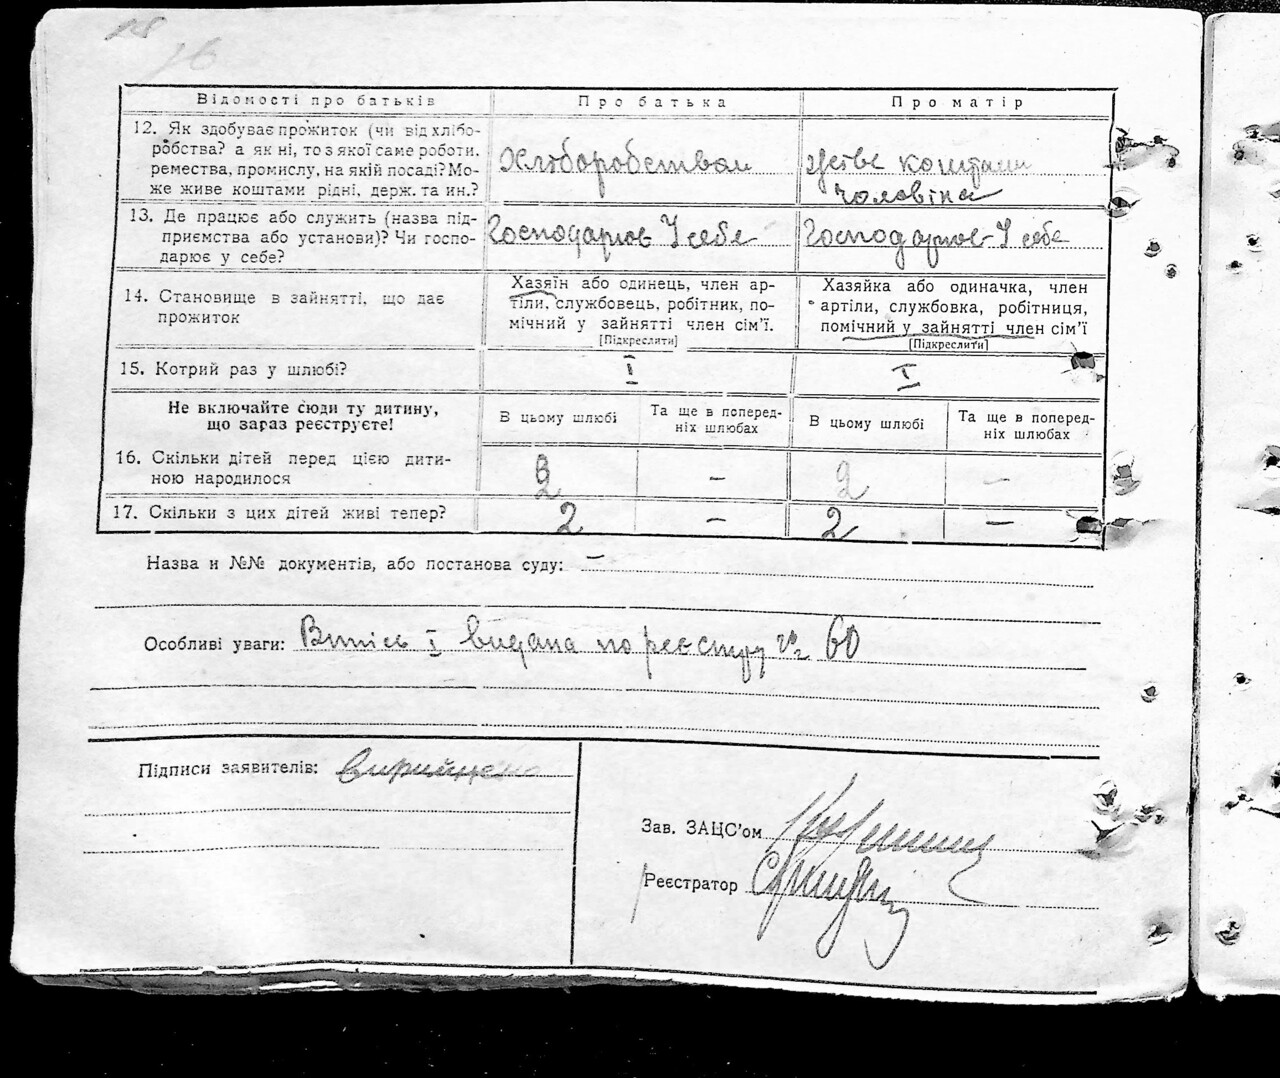 18
16
Відомості про батьків
Про батька
Про матір
12. Як здобуває прожиток (чи від хлібо-
робства? а як ні, то з якої саме роботи,
ремества, промислу, на якій посаді? Мо-
же живе коштами рідні, держ. та ин.?
Хліборобством
живе коштами
чоловіка
13. Де працює або служить (назва під-
приємства або установи)? Чи госпо-
дарює у себе?
Господарює У себе
Господарює У себе
14. Становище в зайнятті, що дає
прожиток
Хазяїн або одинець, член ар-
тіли, службовець, робітник, по-
мічний у зайнятті член сім'ї.
[Підкреслити]
Хазяйка або одиначка, член
артіли, службовка, робітниця,
помічний у зайнятті член сім'ї
[Підкреслити]
15. Котрий раз у шлюбі?
I
I
Не включайте сюди ту дитину,
що зараз реєструєте!
В цьому шлюбі
Та ще в поперед-
ніх шлюбах
В цьому шлюбі
Та ще в попере-
дніх шлюбах
16. Скільки дітей перед цією дити-
ною народилося
2
–
2
–
17. Скільки з цих дітей живі тепер?
2
–
2
–
Назва и №№ документів, або постанова суду: –
Особливі уваги: Витіс I видана по реєстру № 60
Підписи заявителів:
Зав. ЗАЦС'ом
Реєстратор